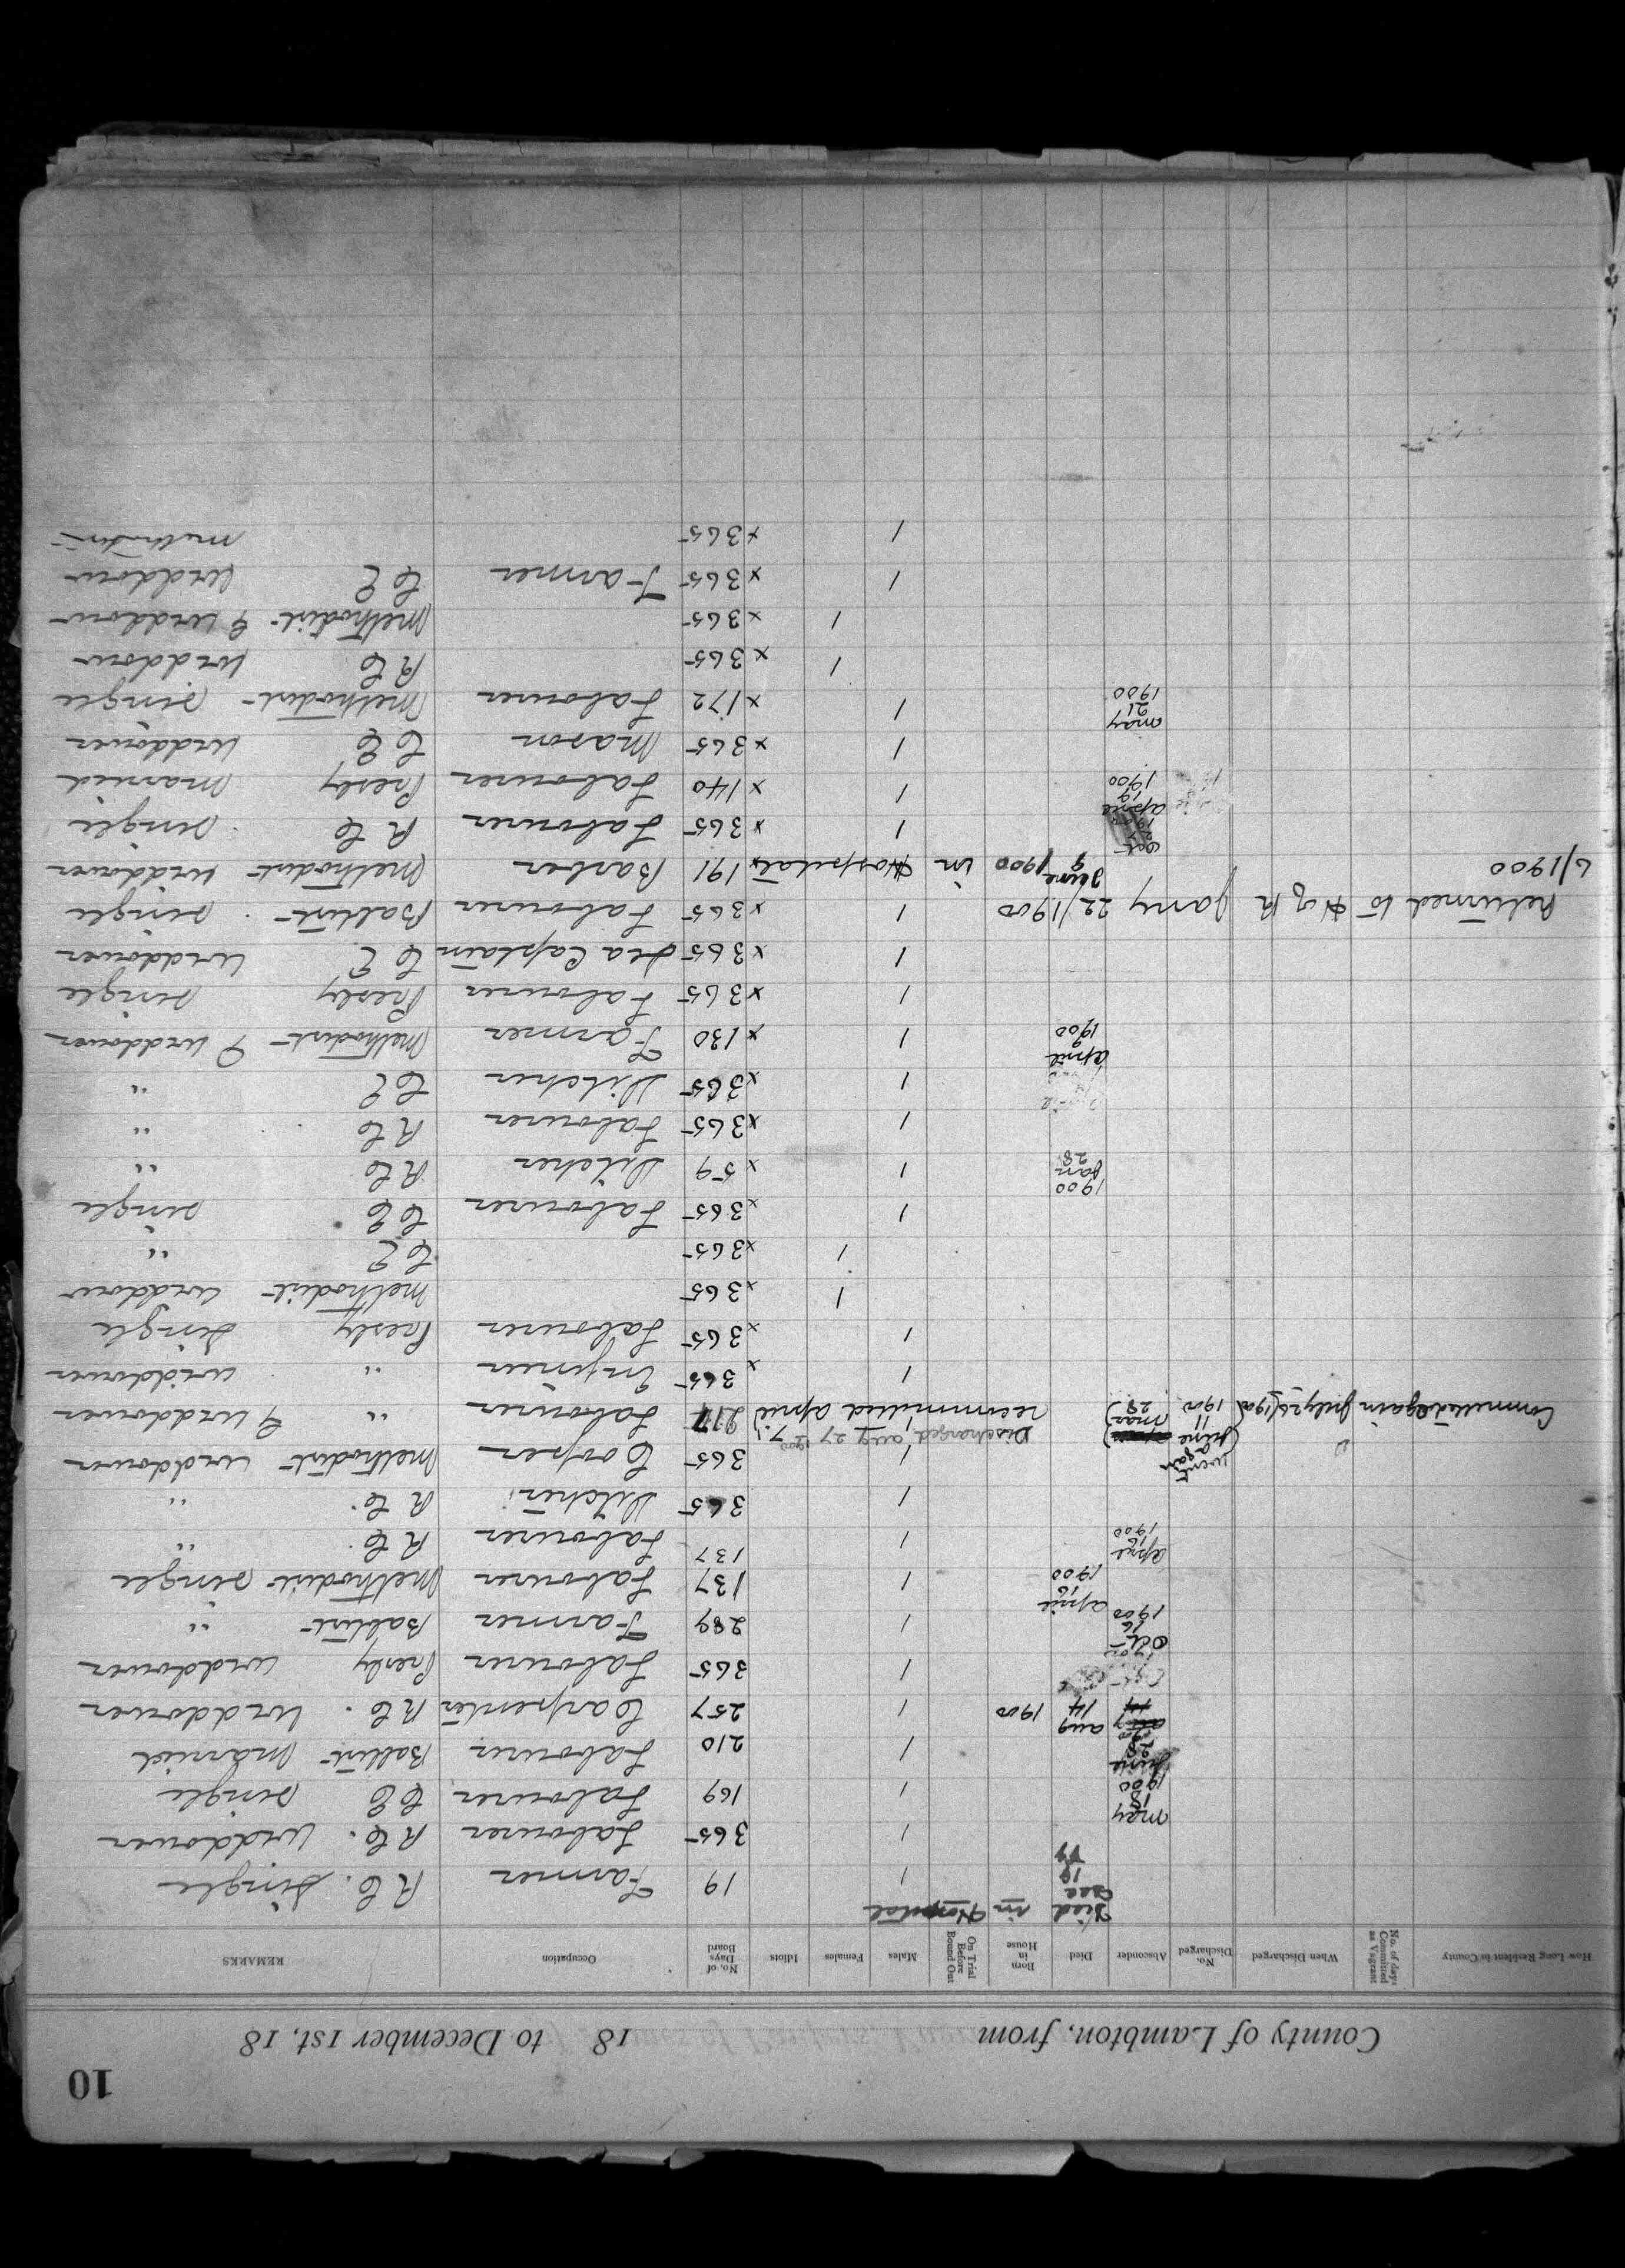 10
County of Lambton, from 18 to December 1st, 18
How Long Resident in County No. of days Committed as Vagrant When Discharged No. Discharged Absconder Died Born in House On Trial Before Bound Out Males Females Idiots No. of Days Board Occupation REMARKS
Died Dec 18 in Hospital
1 19 Farmer R C. Single
1 365 Labourer R C. Widdower
May 18 1900 1 169 Labourer C E single
June 28 1 210 Labourer Babtist married
aug 14 1900 1 257 Carpenter R C. Widdower
1 365 Labourer Presby widdower
Oct 16 1900 1 289 Farmer Babtist "
april 16 1900 1 137 Labourer Methodist single
april 16 1900 1 137 Labourer R C. "
1 365 Ditcher R C. "
1 365 Cooper Methodist widdower
went again
Discharged aug 27 1900
Committed again July 26/1900 (June 11 1900 mar 28) recommitted april 7) 217 Labourer " widdower
1 x 365 Enjineer " widdower
1 x 365 Labourer Presby Single
1 x 365 Methodist widdow
1 x 365 C E "
1 x 365 Labourer C E single
1900 Jan 28 1 x 59 Ditcher R C "
1 x 365 Labourer R C "
1 x 365 Ditcher C E "
april 9 1900 1 x 130 Farmer Methodist widdower
1 x 365 Labourer Presby single
1 x 365 Sea Captain C E widdower
Returned to H of R Jany 22/1900 1 x 365 Labourer Babtist single
6/1900 June 9 1900 in Hospital x 191 Barber Methodist widdower
1 x 365 Labourer R C single
april 19 1900 1 x 140 Labourer Presby married
1 x 365 Mason C E widdower
may 21 1900 1 x 172 Labourer Methodist single
1 x 365 R C widdow
1 x 365 Methodist widdow
1 x 365 Farmer C E widdow
1 x 365